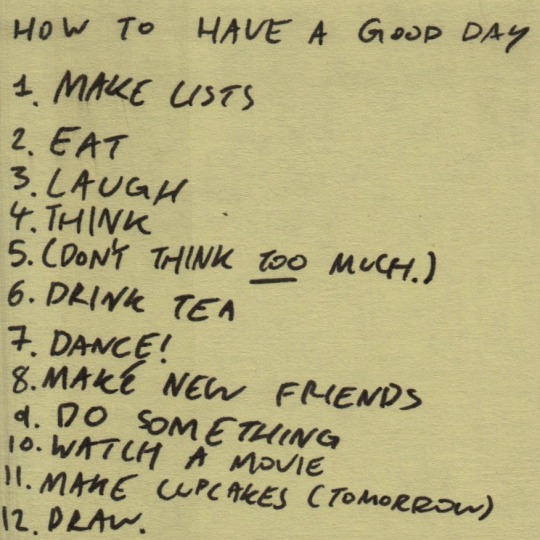 HOW TO HAVE A GOOD DAY
1. MAKE LISTS
2. EAT
3. LAUGH
4. THINK
5. (DON'T THINK TOO MUCH.)
6. DRINK TEA
7. DANCE!
8. MAKE NEW FRIENDS
9. DO SOMETHING
10. WATCH A MOVIE
11. MAKE CUPCAKES (TOMORROW)
12. DRAW.